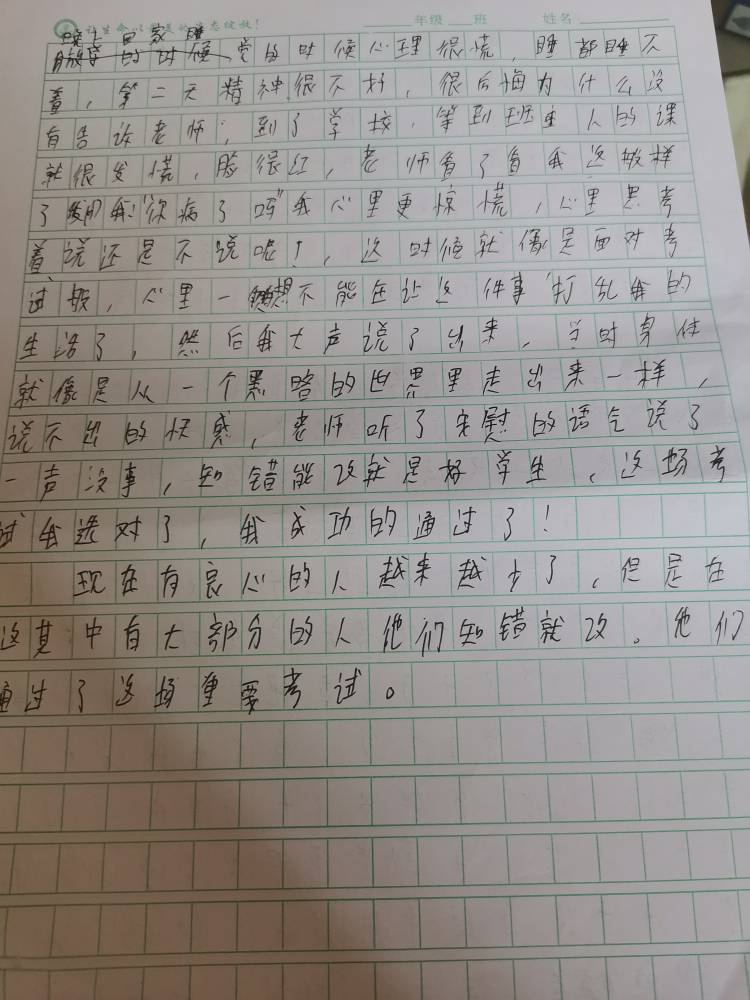 让生命以 的姿态绽放! 年级 班 姓名
晚上回家睡
放学的时候觉的时候心理很慌,睡都睡不
着,第二天精神很不好,很后悔为什么没
有告诉老师,到了学校,等到班主人的课
就很发慌,脸很红,老师看了看我这般样
了 我:“你病了吗”我心里更惊慌,心里思考
着说还是不说呢!,这时候就像是面对考
试般,心里一 想不能在让这件事打乱我的
生活了,然后我大声说了出来,当时身体
就像是从一个黑暗的世界里走出来一样,
说不出的快感,老师听了安慰的语气说了
一声没事,知错能改就是好学生,这场考
试我选对了,我成功的通过了!
现在有良心的人越来越少了,但是在
这其中有大部分的人他们知错就改。他们
通过了这场重要考试。